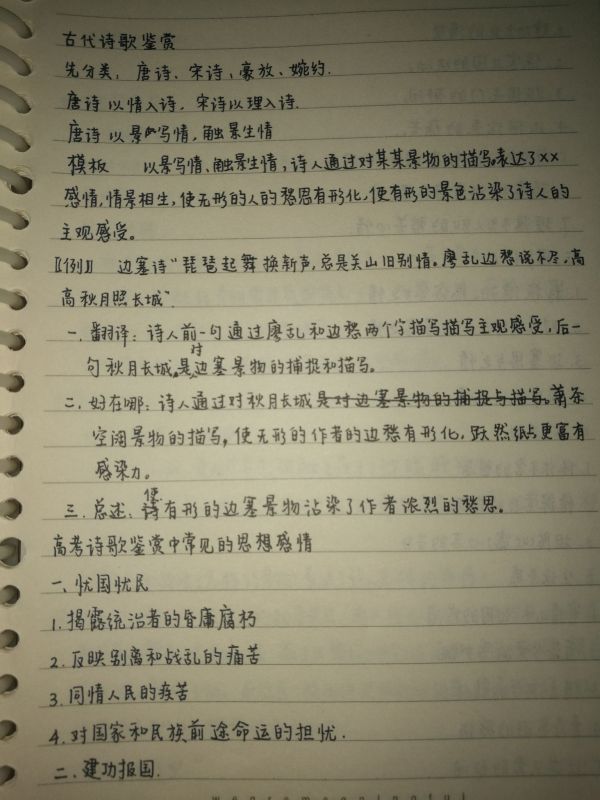 古代诗歌鉴赏
先分类，唐诗、宋诗、豪放、婉约.
唐诗以情入诗，宋诗以理入诗.
唐诗以景写情，触景生情
模板 以景写情、触景生情，诗人通过对某某景物的描写。表达了××
感情，情景相生，使无形的人的愁思有形化，使有形的景色沾染了诗人的
主观感受。
【例】 边塞诗“琵琶起舞换新声，总是关山旧别情。廖乱边愁说不尽，高
高秋月照长城”
一．翻译：诗人前一句通过廖乱和边愁两个字描写描写主观感受，后一
句秋月长城，是对边塞景物的捕捉和描写。
二．好在哪：诗人通过对秋月长城是对边塞景物的捕捉与描写。萧条
空阔景物的描写，使无形的作者的边愁有形化，跃然纸上更富有
感染力。
三．总述：使有形的边塞景物沾染了作者浓烈的愁思。
高考诗歌鉴赏中常见的思想感情
一、忧国忧民
1．揭露统治者的昏庸腐朽
2．反映别离和战乱的痛苦
3．同情人民的疾苦
4．对国家和民族前途命运的担忧．
二．建功报国.